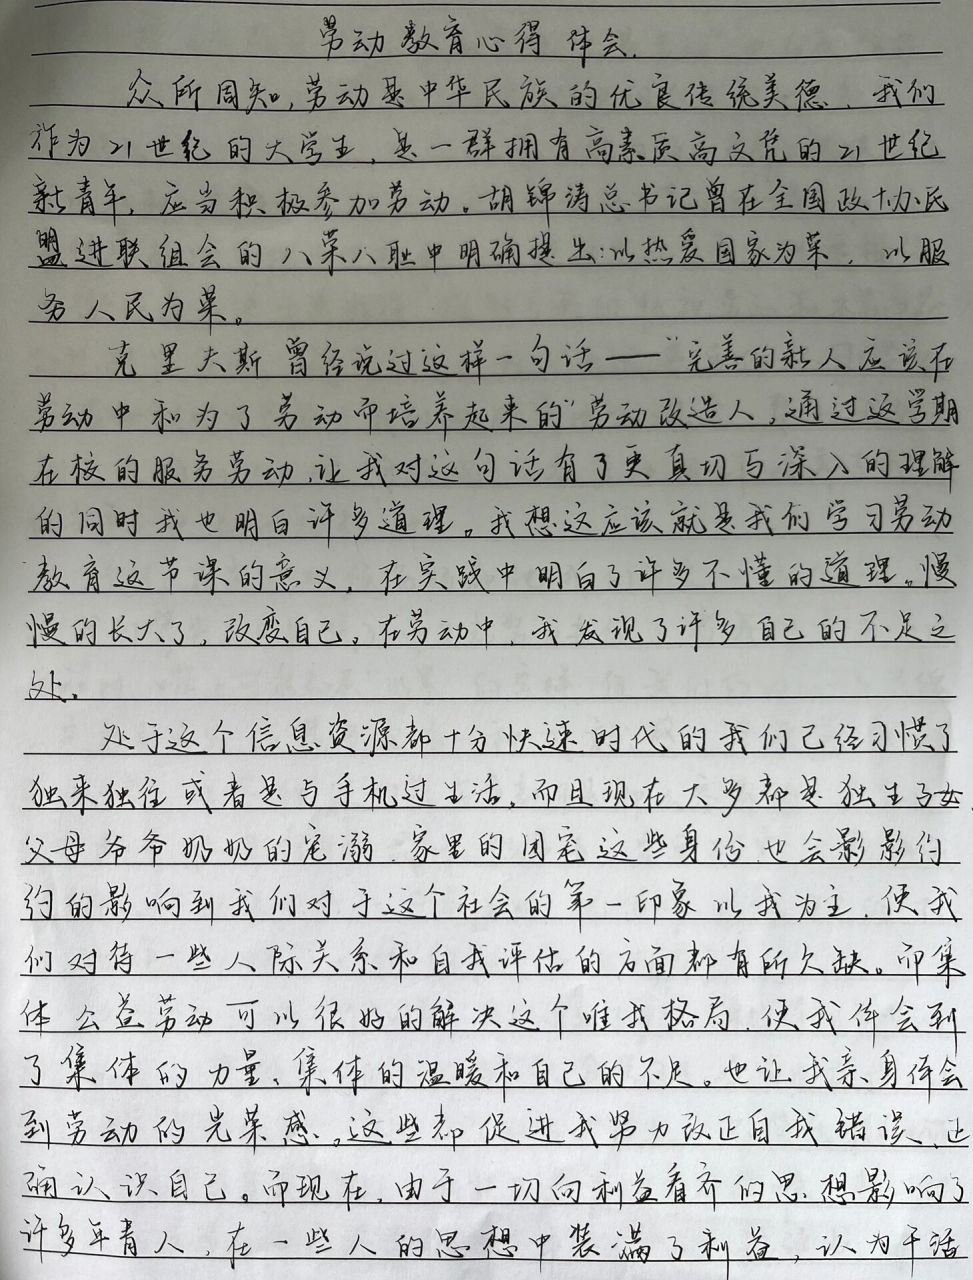 劳动教育心得体会.
众所周知,劳动是中华民族的优良传统美德,我们
作为21世纪的大学生,是一群拥有高素质高文凭的21世纪
新青年,应当积极参加劳动。胡锦涛总书记曾在全国政协民
盟进联组会的八荣八耻中明确提出:以热爱国家为荣,以服
务人民为荣。
克里夫斯曾经说过这样一句话——“完善的新人应该在
劳动中和为了劳动而培养起来的”劳动改造人,通过这学期
在校的服务劳动,让我对这句话有了更真切与深入的理解
的同时我也明白许多道理。我想这应该就是我们学习劳动
教育这节课的意义,在实践中明白了许多不懂的道理。慢
慢的长大了,改变自己。在劳动中,我发现了许多自己的不足之
处。
处于这个信息资源都十分快速时代的我们已经习惯了
独来独往或者是与手机过生活,而且现在大多都是独生子女
父母爷爷奶奶的宠溺,家里的团宠这些身份也会影影约
约的影响到我们对于这个社会的第一印象以我为主,使我
们对待一些人际关系和自我评估的方面都有所欠缺。而集
体公益劳动可以很好的解决这个唯我格局,使我体会到
了集体的力量、集体的温暖和自己的不足。也让我亲身体会
到劳动的光荣感。这些都促进我努力改正自我错误,正
确认识自己。而现在,由于一切向利益看齐的思想影响了
许多年青人,在一些人的思想中装满了利益,认为干活